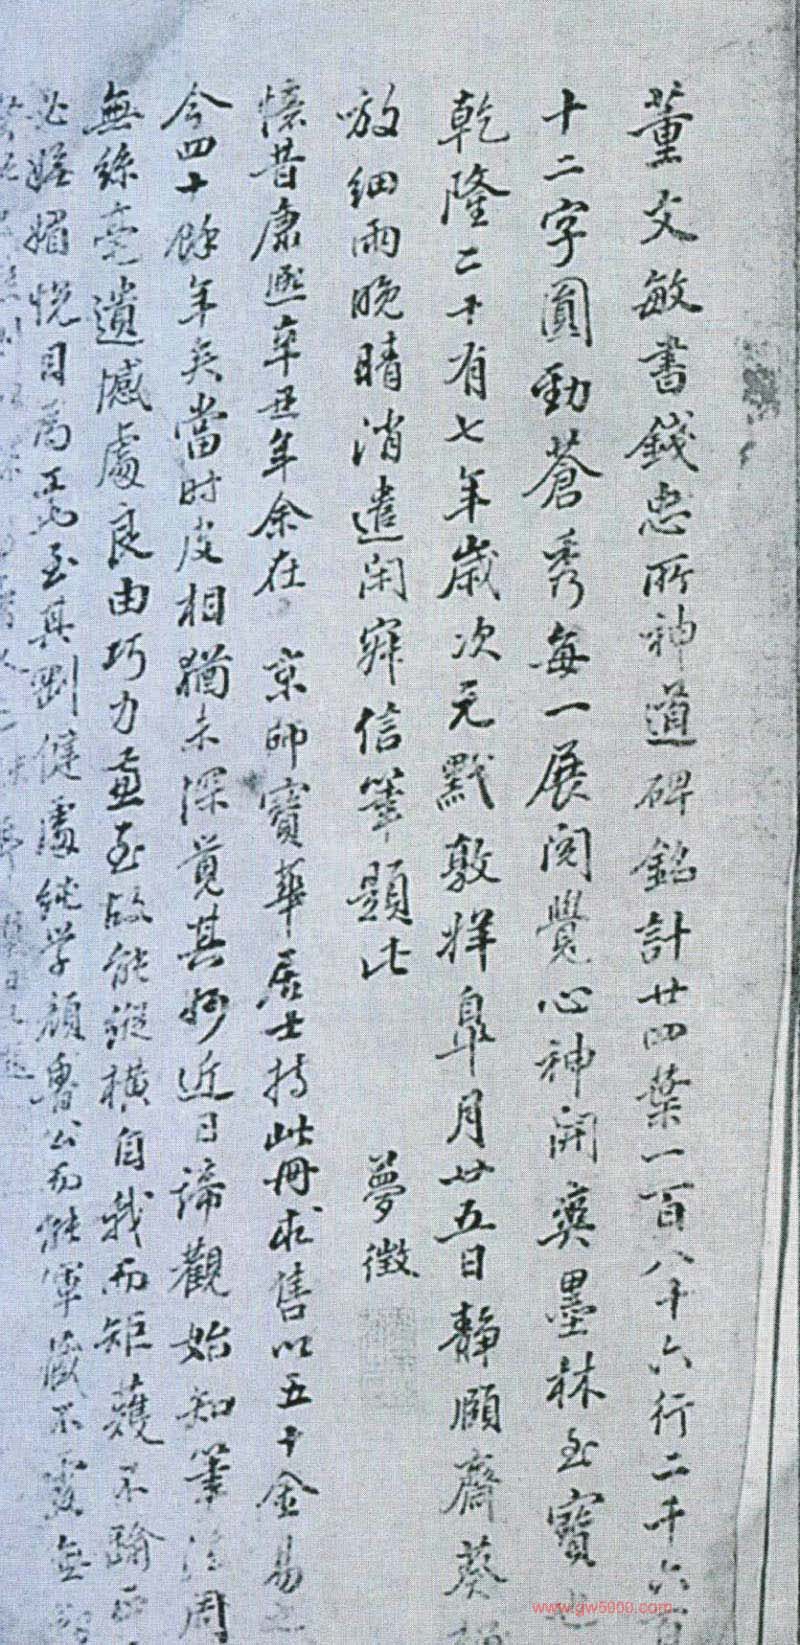 董文敏書錢忠所神道碑銘計廿四葉一百八十六行二千六百
十二字圓勁蒼秀每一展閱覺心神開爽墨林至寶也
乾隆二十有七年歲次元黓敦牂皐月廿五日靜頤齋葵
放細雨晚晴消遣閑寂信筆題此 夢徵
憶昔康熙辛丑年余在 京師寶華居士持此冊求售以五十金易之
今四十餘年矣當時皮相猶未深覓其妙近日諦觀始知筆法周
無絲毫遺憾處良由巧力兼至故能縱橫自我而矩蒦不踰
必姿媚悅目為工至其剛健處純學顏魯公而能渾藏不露無
www.gw5000.com